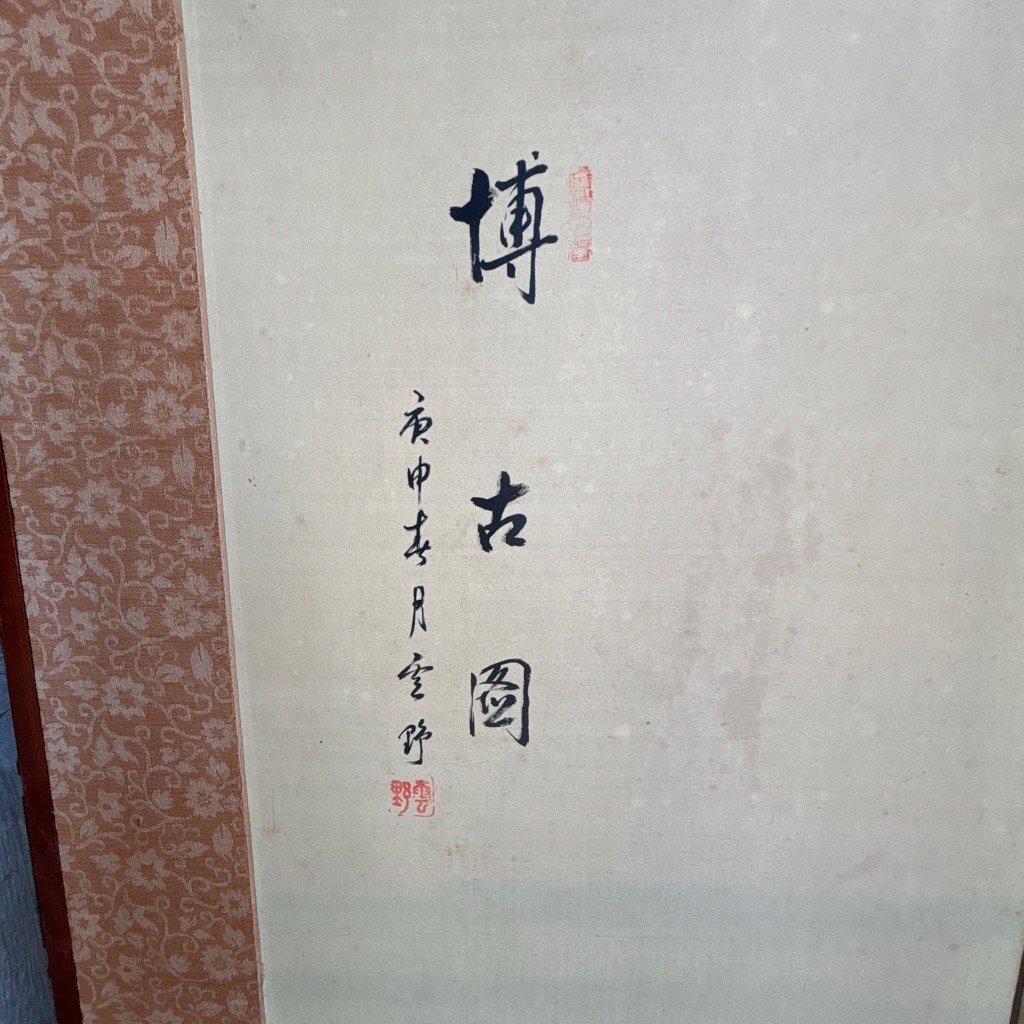 博古图
庚申春月雲野
雲野